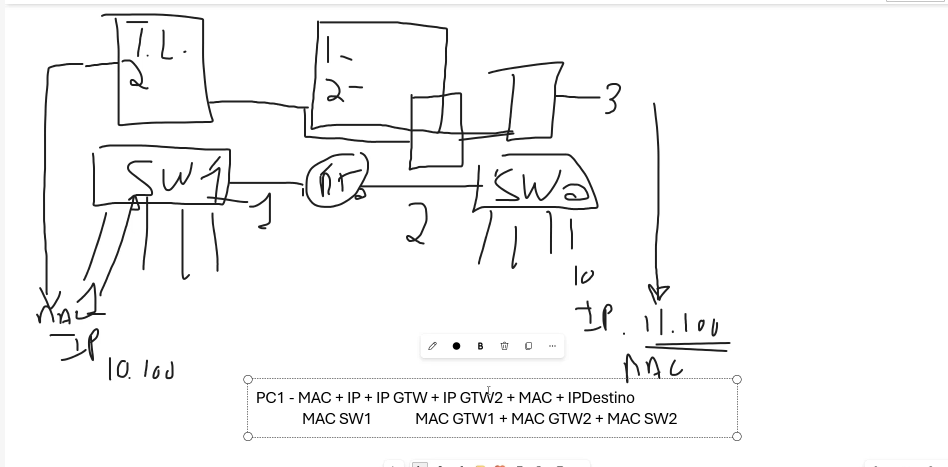 I.L.
2
1-
2-
3
SW1
1
2
10
MAC 1
IP
10.100
IP. 11.100
MAC
PC1 - MAC + IP + IP GTW + IP GTW2 + MAC + IPDestino
MAC SW1 MAC GTW1 + MAC GTW2 + MAC SW2
B